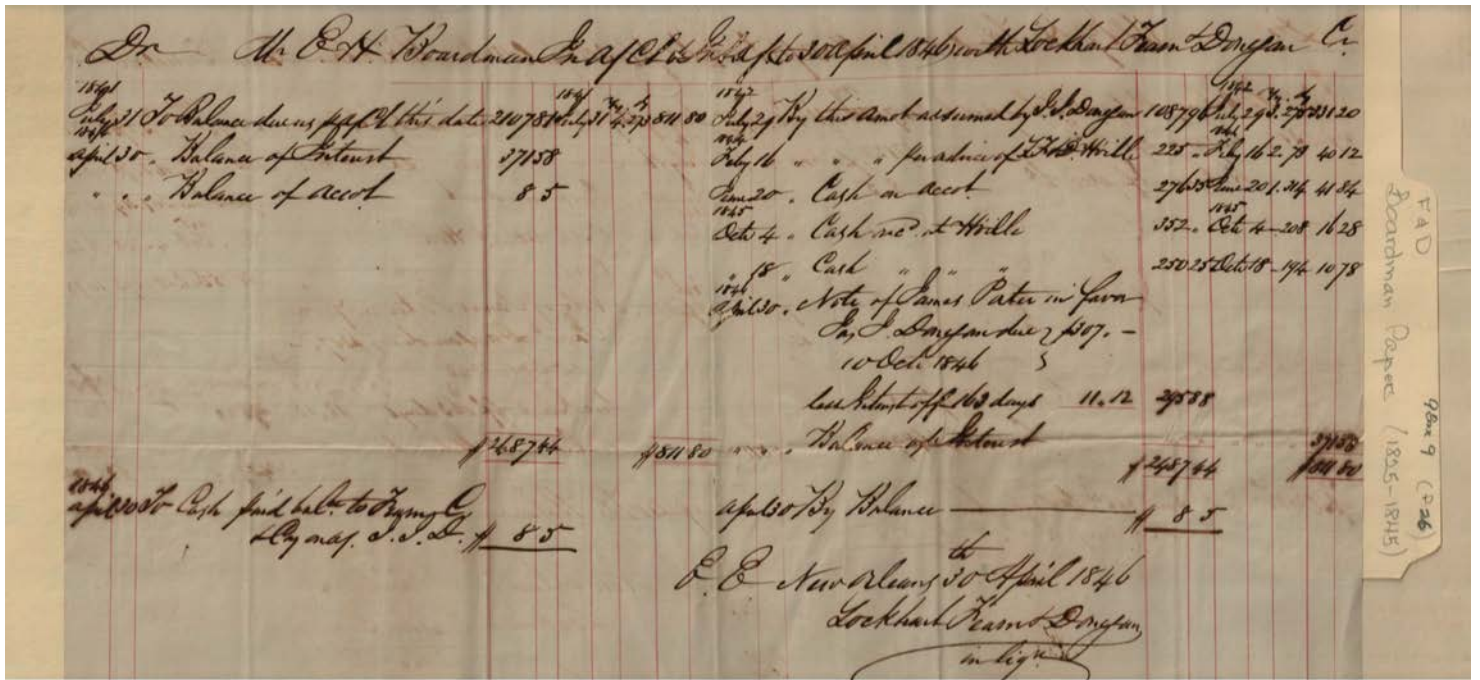 Dr Mr E. H. Boardman In a/ Ct & Int a/c to 30 April 1846 with Lockhart Fearn & Donegan Cr
1841 1841
July 31 To Balance due us p a/c of this date 2107 81 July 31 811 80
1846
April 30 " Balance of Interest 371 58
" " " Balance of accot 8 05
$2487 44 $811 80
1846
April 30 To Cash paid balce to
$ 8 05
1842 1842
July 29 By this amot assumed by J. J. Donegan 1087 96 July 29 331 20
1844
Feby 16 " " " per advice of Hville 225 " Feby 16 2. 73 40 12
June 20 " Cash on accot 276 35 June 20 1. 314 41 84
1845 1845
Octr 4 " Cash recd at Hville 352 " Octr 4 - 208 16 28
" 18 " Cash " " " 250 25 Octr 18 - 194 10 78
1846
April 30 " Note of James Pater in favor
Jas. J. Donegan due } $307. -
10 Oct. 1846
less Interest off 163 days 11.12 295 88
" " " Balance of Interest 371 58
$2487 44 $811 80
April 30 By Balance $ 8 05
E. E. New Orleans 30th April 1846
Lockhart Fearn & Donegan
in liqn
F & D
Boardman Papers (1825-1845)
Box 9 (F26)